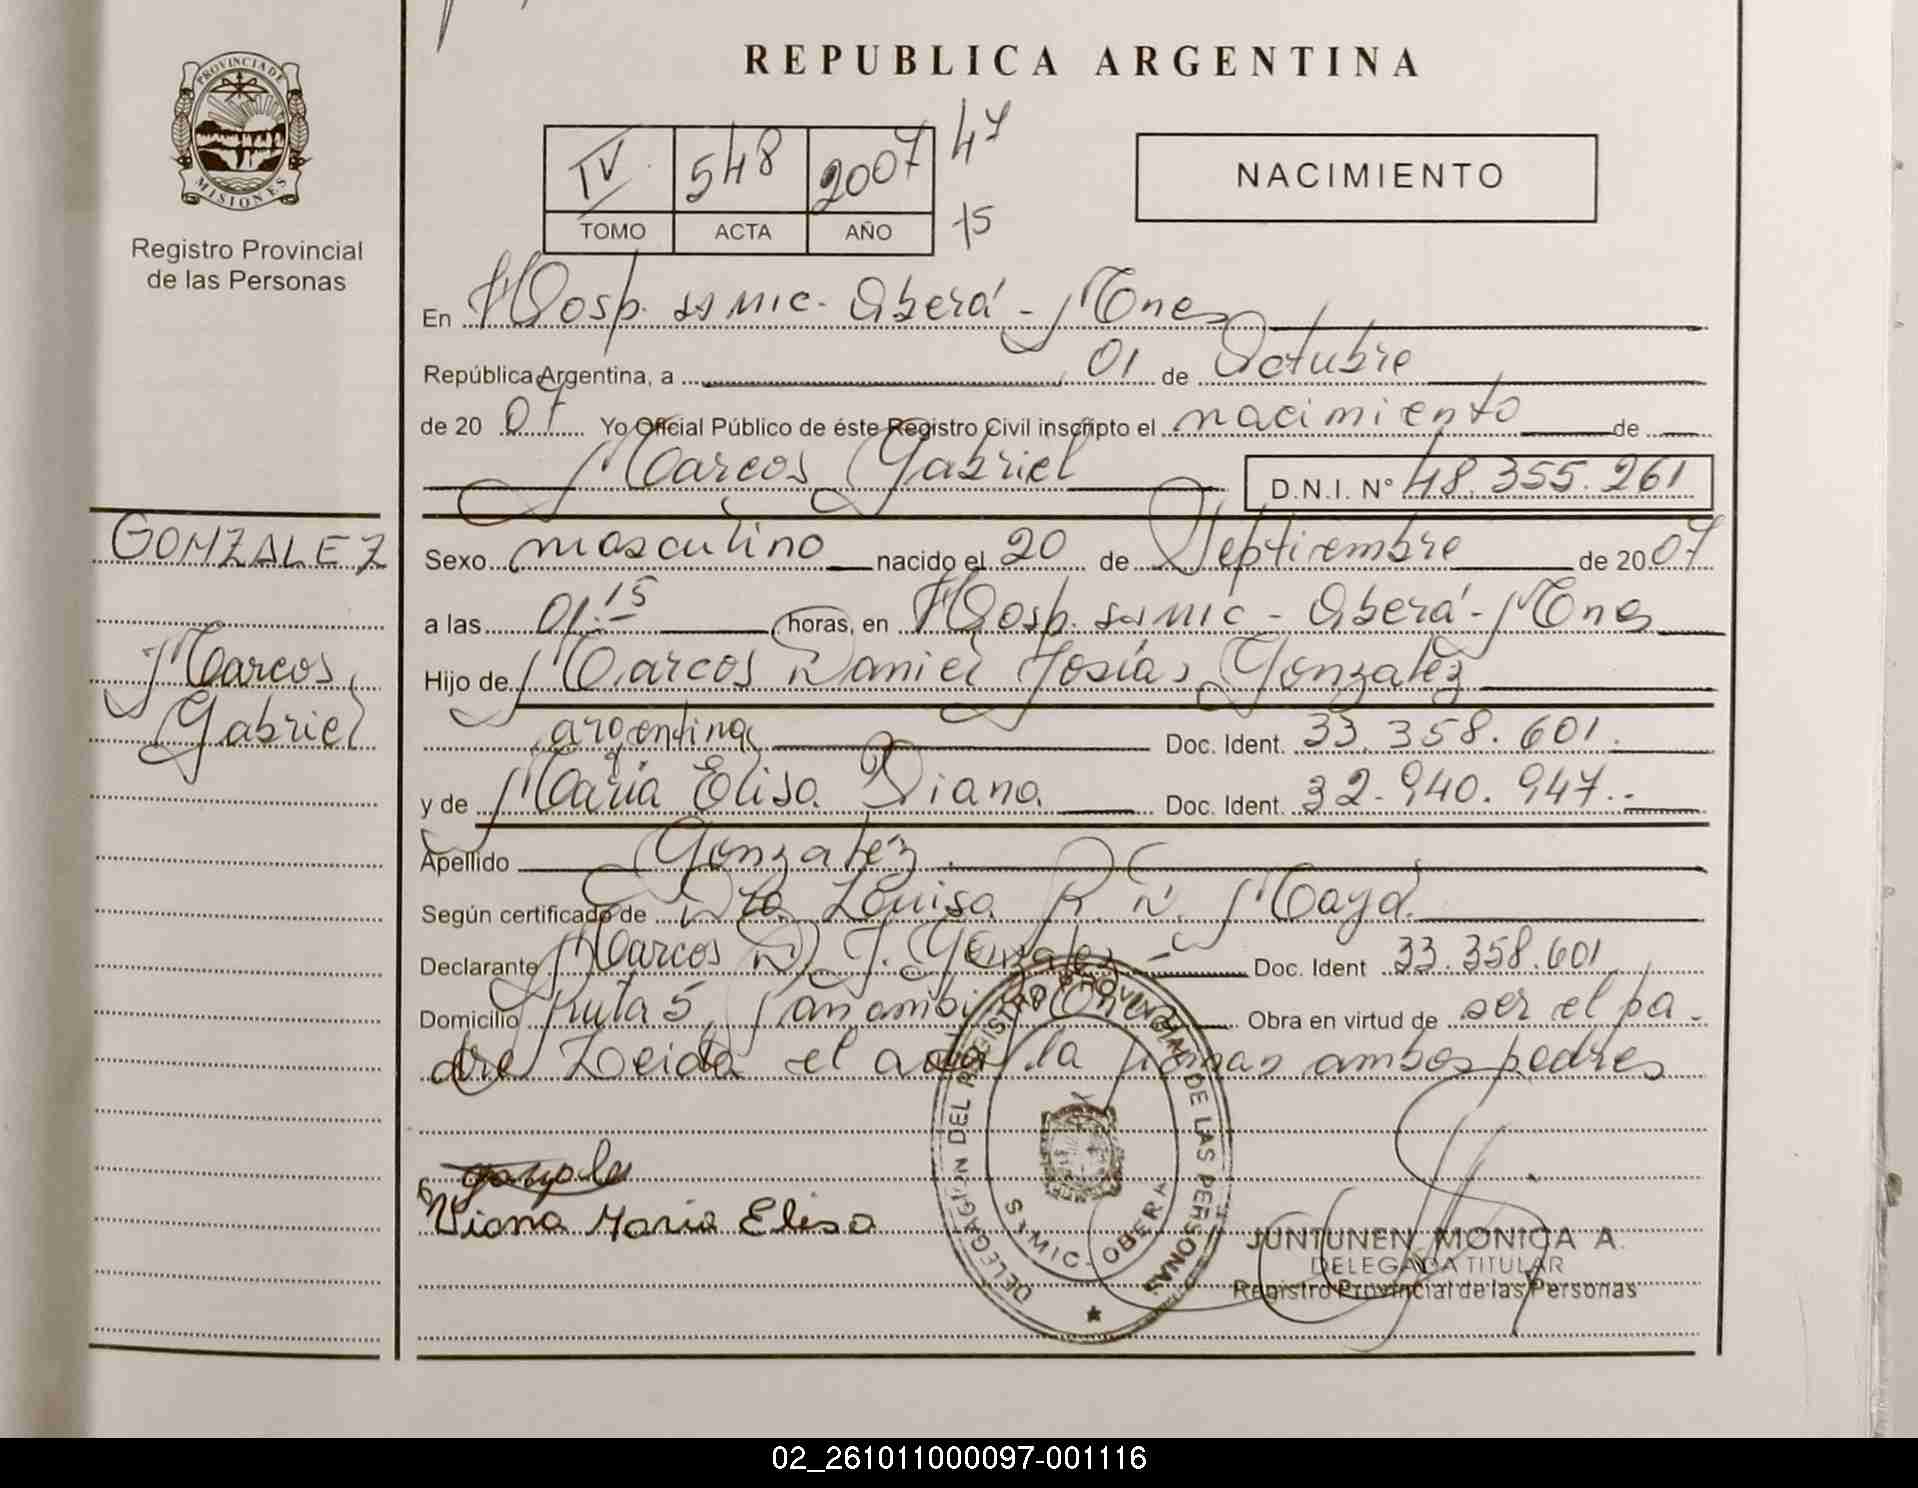 REPUBLICA ARGENTINA
PROVINCIA DE MISIONES
Registro Provincial
de las Personas
IV 548 2007 47
TOMO ACTA AÑO 15
NACIMIENTO
En Hosp. samic. Oberá - Mnes
República Argentina, a 01 de Octubre
de 20 07 Yo Oficial Público de éste Registro Civil inscripto el nacimiento de
Marcos Gabriel D.N.I. N° 48.355.261
GONZALEZ
Marcos
Gabriel
Sexo masculino nacido el 20 de Septiembre de 2007
a las 01:15 horas, en Hosp. samic - Oberá - Mnes
Hijo de Marcos Daniel Josías Gonzalez
argentina Doc. Ident. 33.358.601.
y de María Elisa Viana Doc. Ident. 32.940.947.-
Apellido Gonzalez.
Según certificado de Dra Louisa R. N. Mayd.
Declarante Marcos D. J. Gonzalez - Doc. Ident 33.358.601
Domicilio Ruta 5, Panambi Mnes Obra en virtud de ser el pa-
dre Leida el acta la firman ambos padres
gonzalez
Viana Maria Elisa
DELEGACION DEL REGISTRO PROVINCIAL DE LAS PERSONAS
SAMIC - OBERA
JUNTUNEN MONICA A.
DELEGADA TITULAR
Registro Provincial de las Personas
02_261011000097-001116